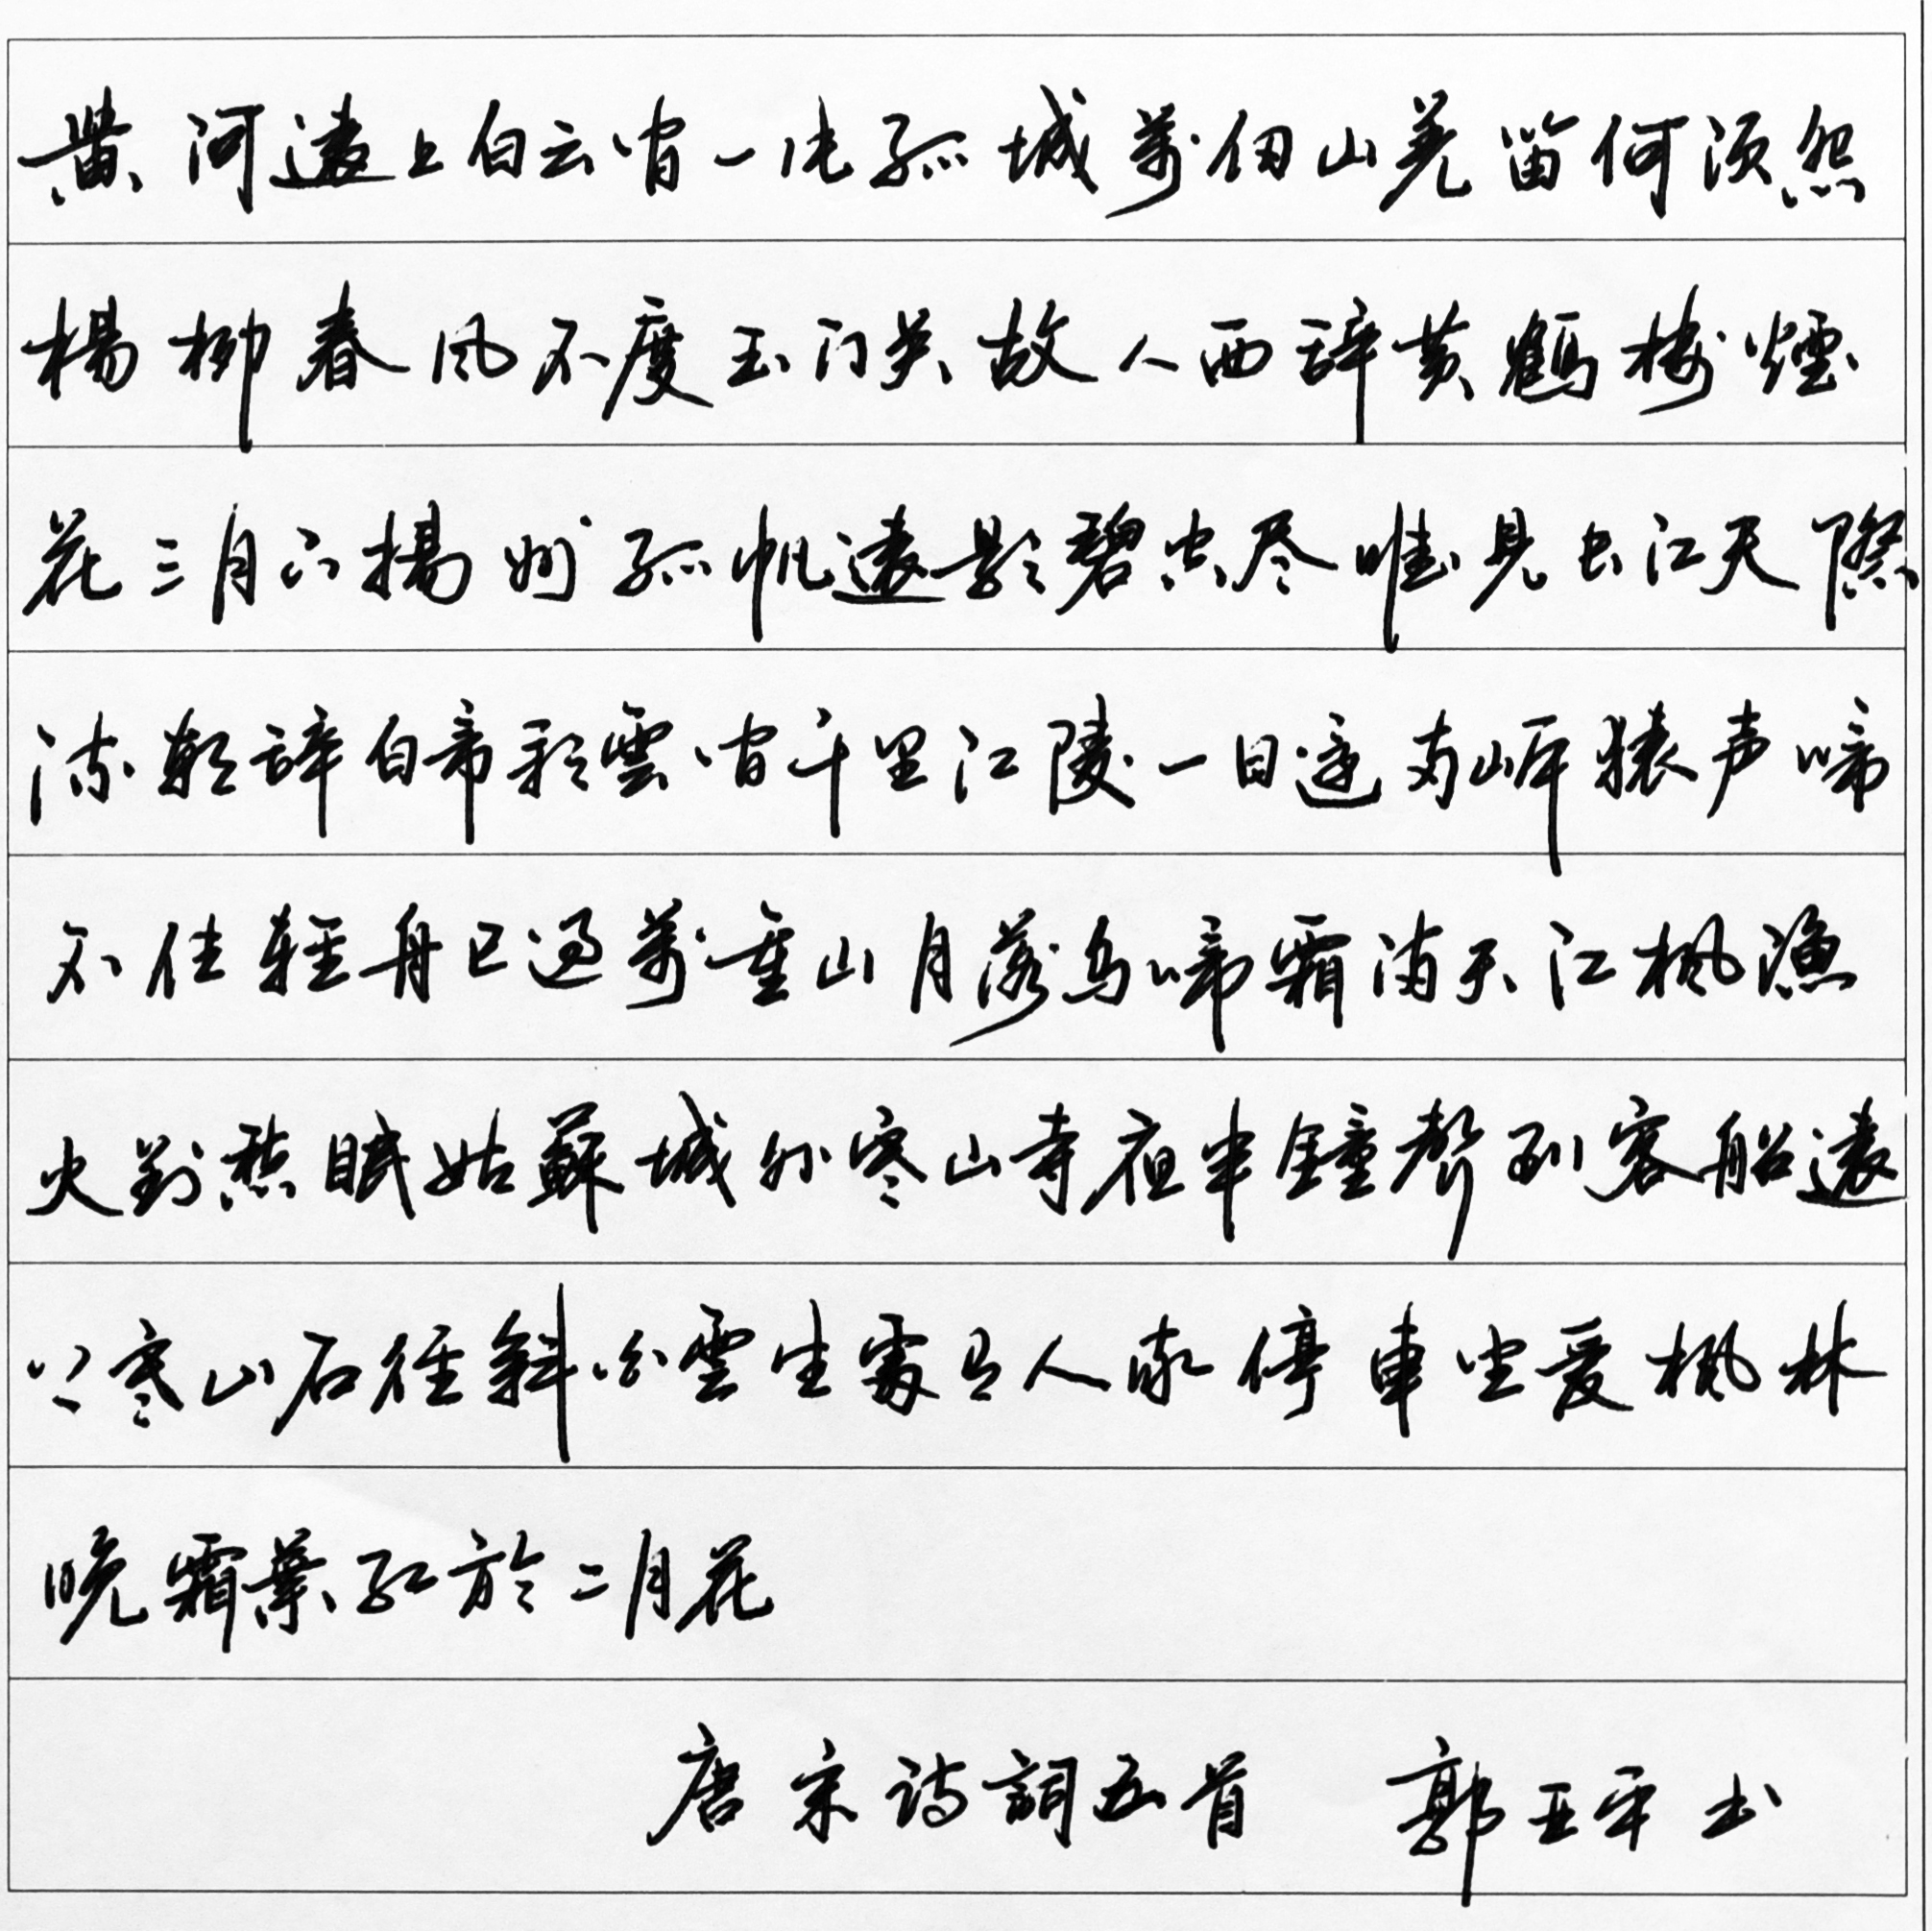 黄河遠上白云间一片孤城萬仞山羌笛何须怨
楊柳春风不度玉门关故人西辞黄鶴楼煙
花三月下揚州孤帆遠影碧空尽唯見长江天際
流朝辞白帝彩雲间千里江陵一日还两岸猿声啼
不住輕舟已过萬重山月落乌啼霜满天江枫漁
火對愁眠姑蘇城外寒山寺夜半鐘聲到客船遠
上寒山石径斜白雲生處有人家停車坐爱枫林
晚霜葉红於二月花
唐宋诗詞五首 郭亚平书